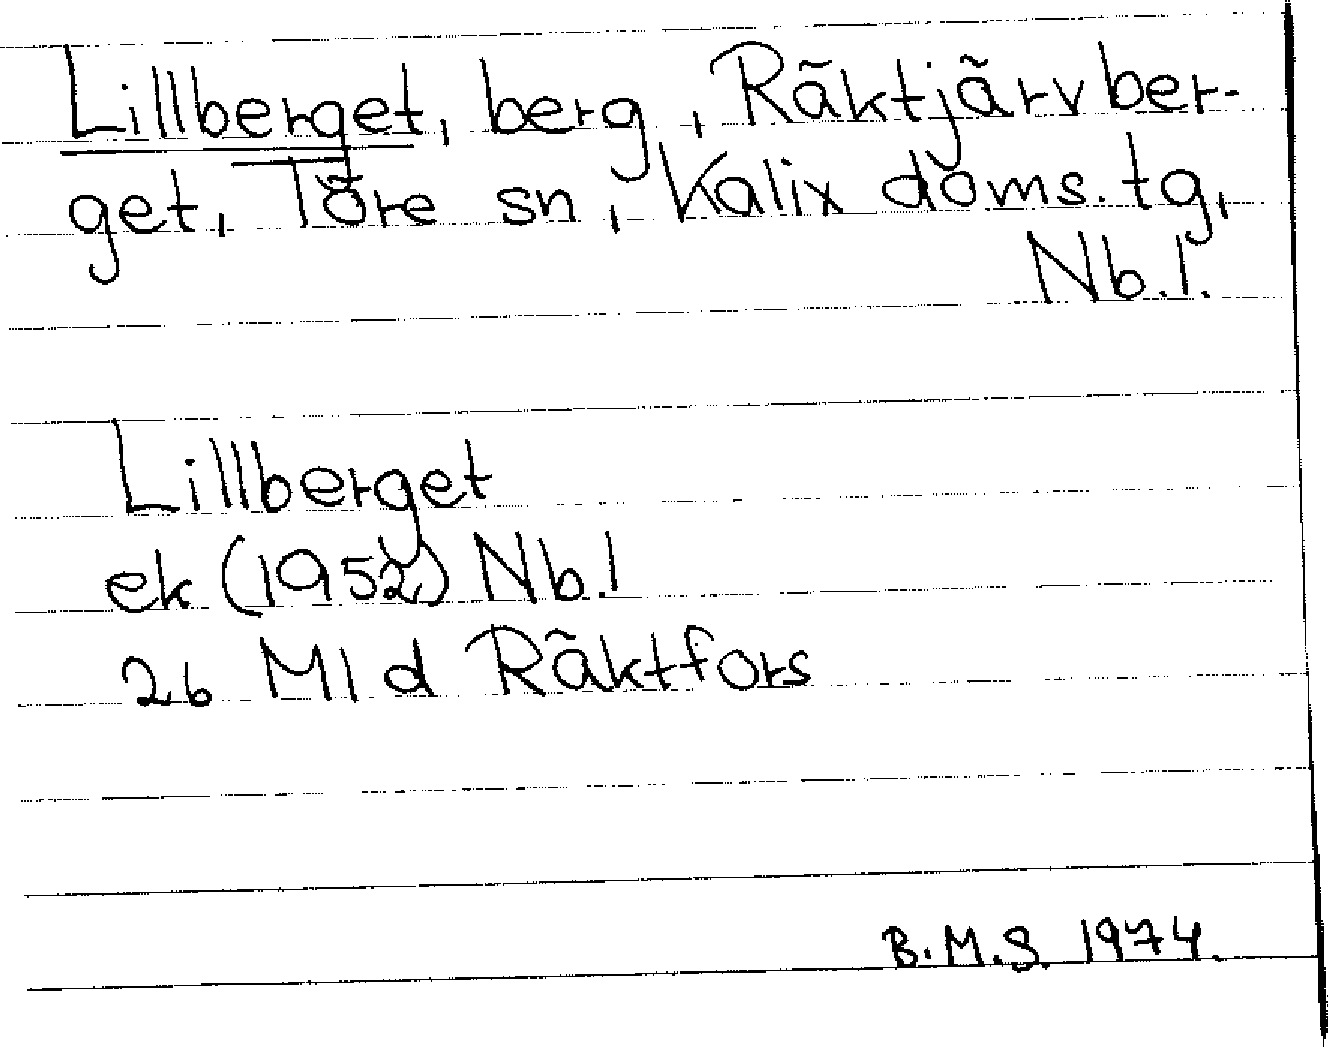 Lillberget, berg, Räktjärvber-
get, Töre sn, Kalix doms. tg,
Nb.l.
Lillberget
ek (1952) Nb.l
26 Ml d Räktfors
B.M.S. 1974.